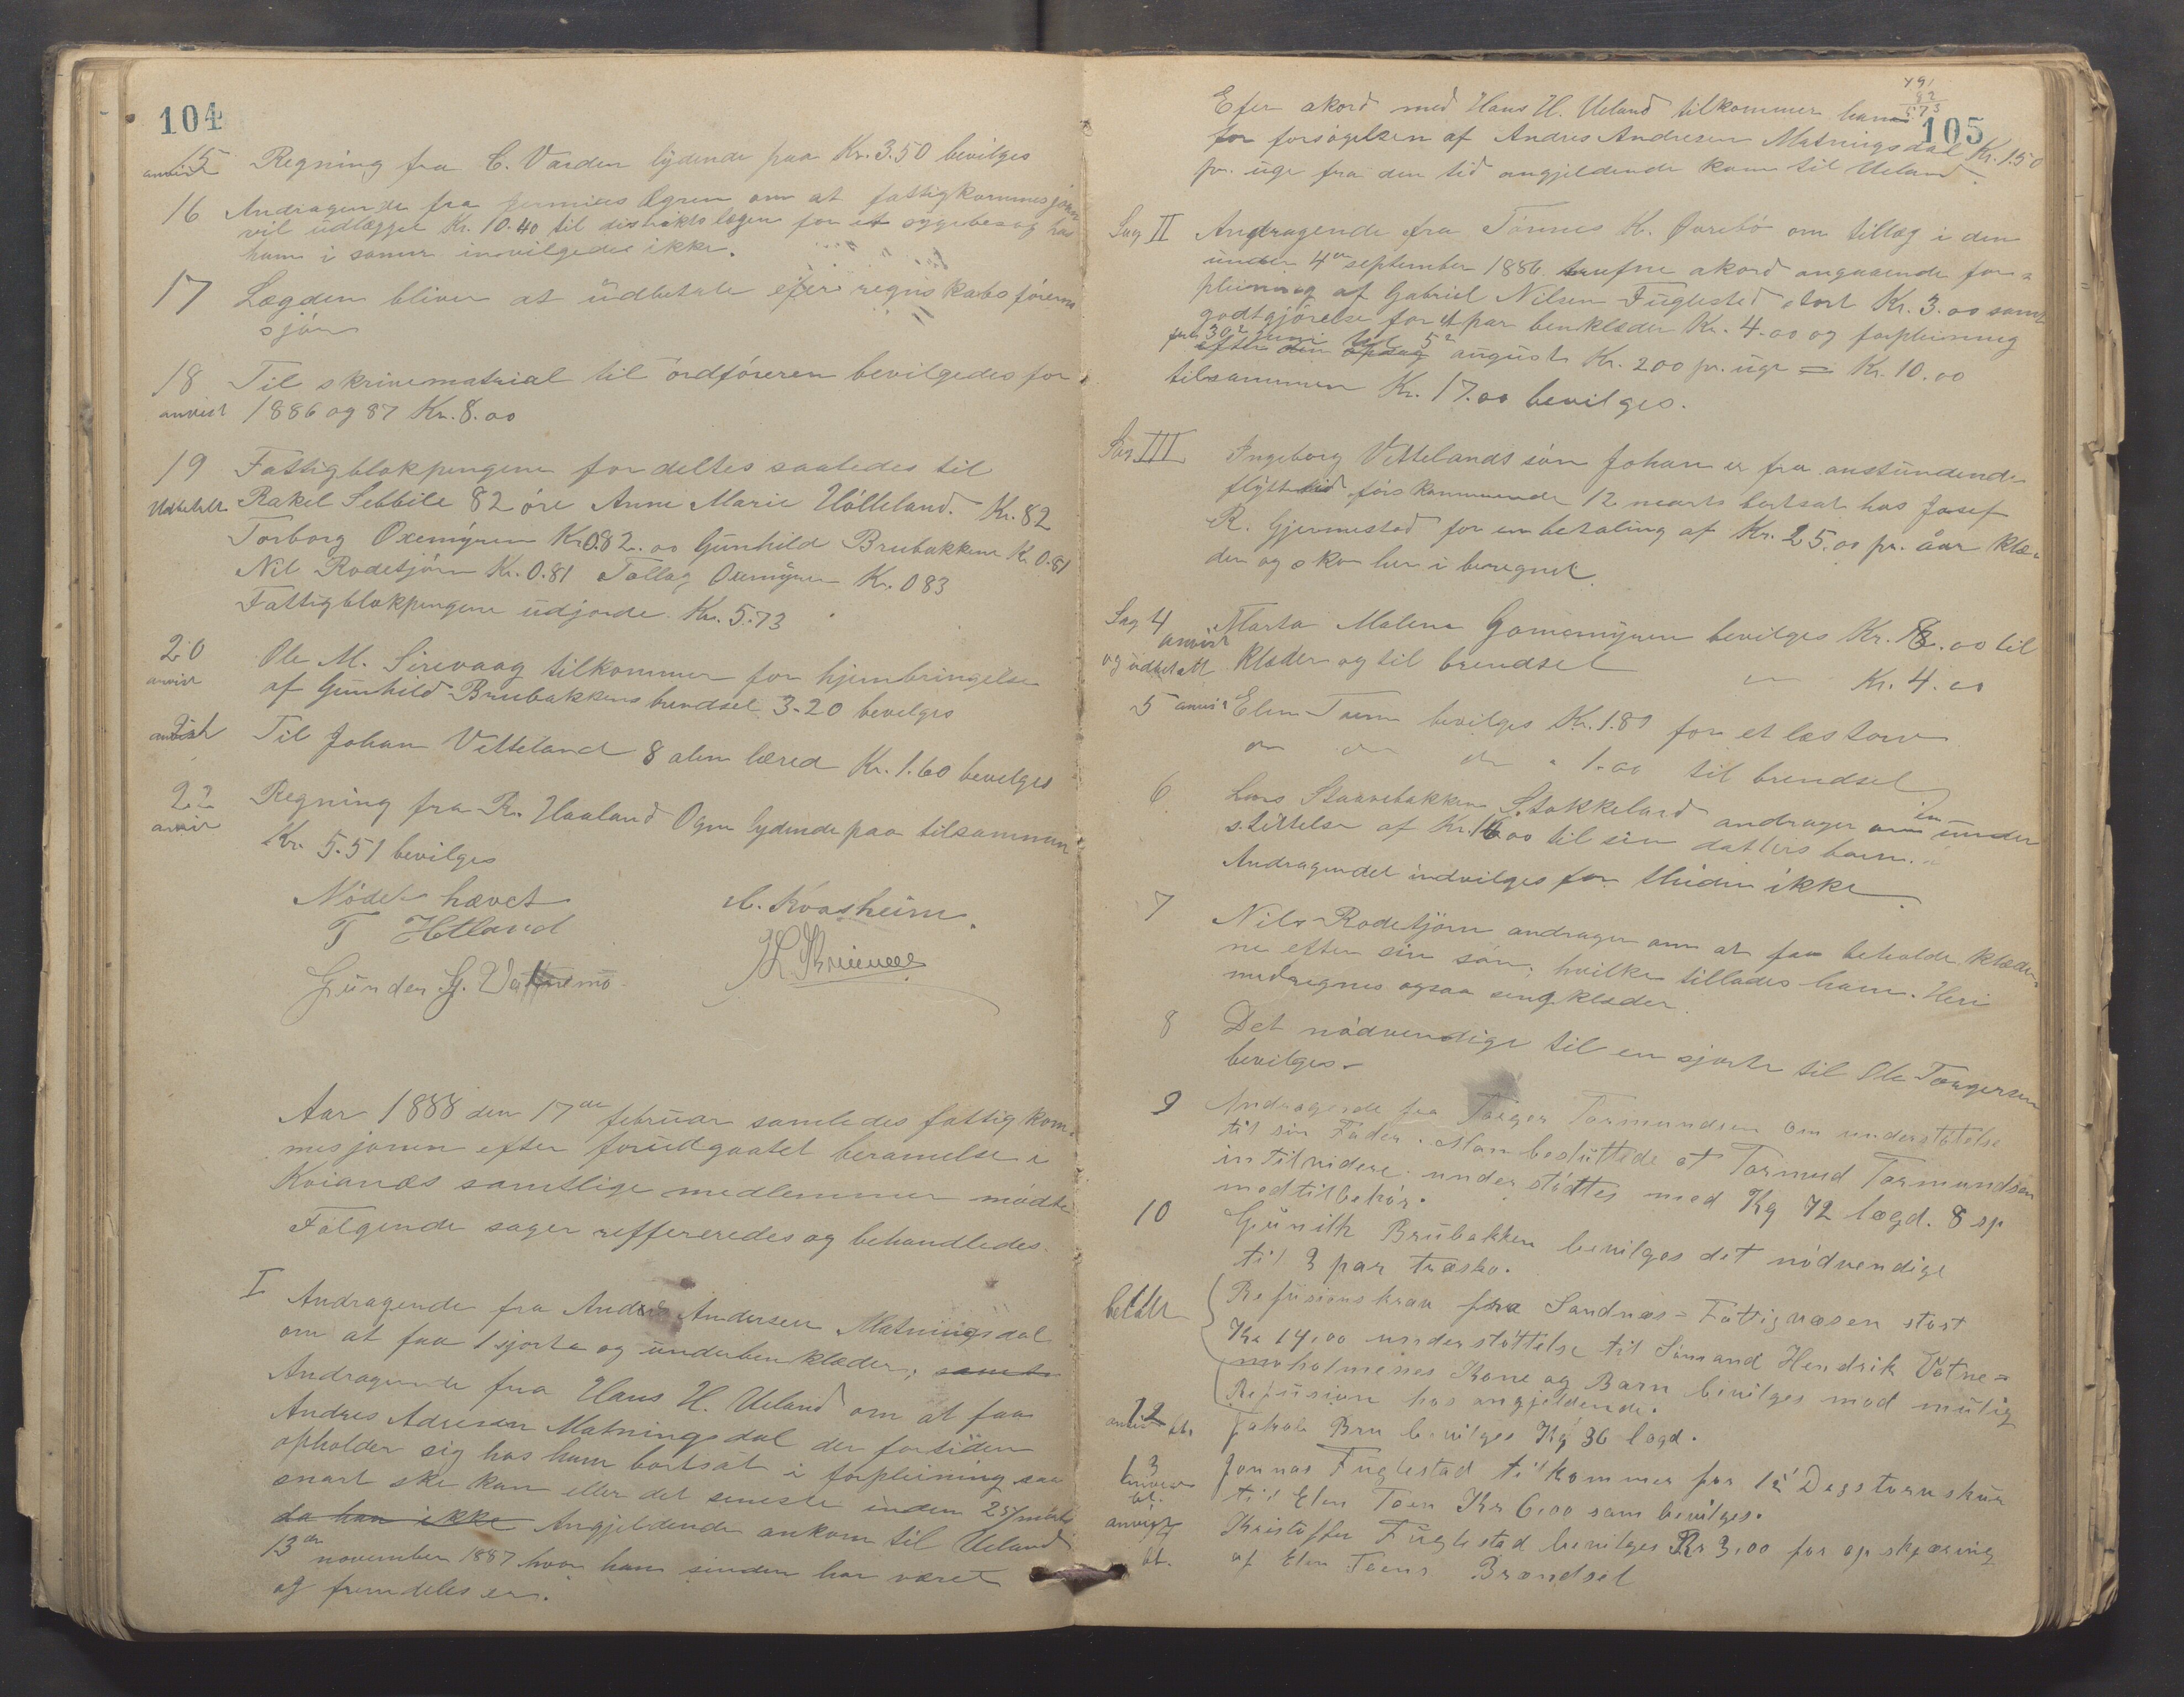 104
15 Regning fra C. Varden lydende paa Kr. 3.50 bevilges
anvist
16 Andragende fra Ogren om at fattigkommesjonen
vil udlægge Kr. 10.40 til distriktslægen for et sygebesøg hos
ham i somer invilgedes ikke.
17 Lægden bliver at üdbetale efter regnskabsførerens
sjön
18 Til skrivematrial til ordføreren bevilgedes for
anvist 1886 og 87 Kr. 8.00
19 Fattigblokpengene fordeltes saaledes til
Udbetalt Rakel Sebbile 82 øre Anne Marie Hölleland. Kr. 82
Torborg Oxemyren Kr 0.82.00 Gunhild Brubakken K 0.81
Nil Rodetjørn Kr. 0.81 Tollag Oxemyren Kr. 083
Fattigblokpengene üdjorde Kr. 5.73
20 Ole M. Sirevaag tilkommer for hjembringelse
anvist af Gunhild Brubakkens brendsel 3.20 bevilges
21 Til Johan Vetteland 8 alen læred Kr. 1.60 bevelges
anvist
22 Regning fra R. Haaland Ogne lydende paa tilsammen
anvist Kr. 5.51 bevilges
Mödet hævet
T Hetland
Gunder G. Vatnemo
Kvasheim
Aar 1888 den 17de februar samledes fattigkom-
mesjonen efter forudgaatet beramelse i
Kvianæs samtlige medlemmer mødte
Følgende sager reffereredes og behandledes.
I Andragende fra Andrs Andersen Matningsdal
om at faa 1 sjorte og ünderbenklæder, samt
Andragende fra Hans H. Ueland om at faa
Andres Adresen Matningsdal der fortiden
opholder sig hos ham bortsat i forpleining saa
snart ske kan eller det seneste inden 25/marts
da han ikke Angjeldende ankom til Ueland
13de november 1887 hvor han sinden har været
og fremdeles er.
791
82
573
105
Efer akord med Hans H. Ueland tilkommer ham
for forsøgelsen af Andres Andresen Matningsdal Kr. 1.50
pr. üge fra den tid angjeldende kom til Ueland.
Sag II Andragende fra Tönnes K. Ovrebö om tillæg i den
ünder 4de september 1886 trufne akord angaaende for-
pleining af Gabriel Nilsen Fuglestad stort Kr. 3.00 samt
godtgjörelse for 1 par benklæder Kr. 4.00 og forpleining
fra 30te juni til 5te august Kr. 200 pr. üge = Kr. 10.00
tilsammen Kr. 17.00 bevilges.
Sag III Ingeborg Vettelands søn Johan er fra anstundende
flyttetid förskommende 12 marts bortsat hos Josef
R. Gjermestad for en betaling af Kr. 25.00 pr. åar klæ-
der og sko her i beregnet.
Sag 4 Marta Malena Gomemyren bevilges Kr. 8.00 til
anvist
og udbetalt klæder og til brendsel Kr. 4.00
5 anvist Elen Tuen bevilges Kr. 1.87 for et læs torv
1.00 til brendsel
6 Lars Staarebakken Stokkeland andrager om en under
stöttelse af Kr. 16.00 til sin datters barn.
Andragendet indvilges for tiden ikke.
7 Nils Rodetjörn andrager om at faa beholde klæder-
ne efter sin søn, hvilke tillades ham. Heri
medregnes ogsaa sengklæder.
8 Det nödvendige til en sjorte til Ole Torgersen
bevilges.
9 Andragende fra Torger Tormundsen om understøtelse
til sin Fader. Man besluttede at Tormud Tormundsen
intilvidere understöttes med Kg 72 lægd. 8 sp
med tilbehör.
10 Gunild Brübakken bevilges det nödvendige
til 3 par træsko.
betalt Refusionskrav fra Sandnæs Fattigvæsen stort
Kr 14.00 understöttelse til Sömand Hendrik Votne-
moholmenes Kone og Barn bevilges mod mülig
Refüsion hos angjeldende.
12 Jakob Bru bevilges Kg 36 lægd.
anvist bt.
13 Jonnas Fuglestad tilkommer for 12 Dags torvskur
anvist
bt. til Elen Toen Kr 6,00 som bevilges.
anvist Kristoffer Fuglestad bevilges Kr 3,00 for opskjæring
bt. af Elen Toens Brændsel